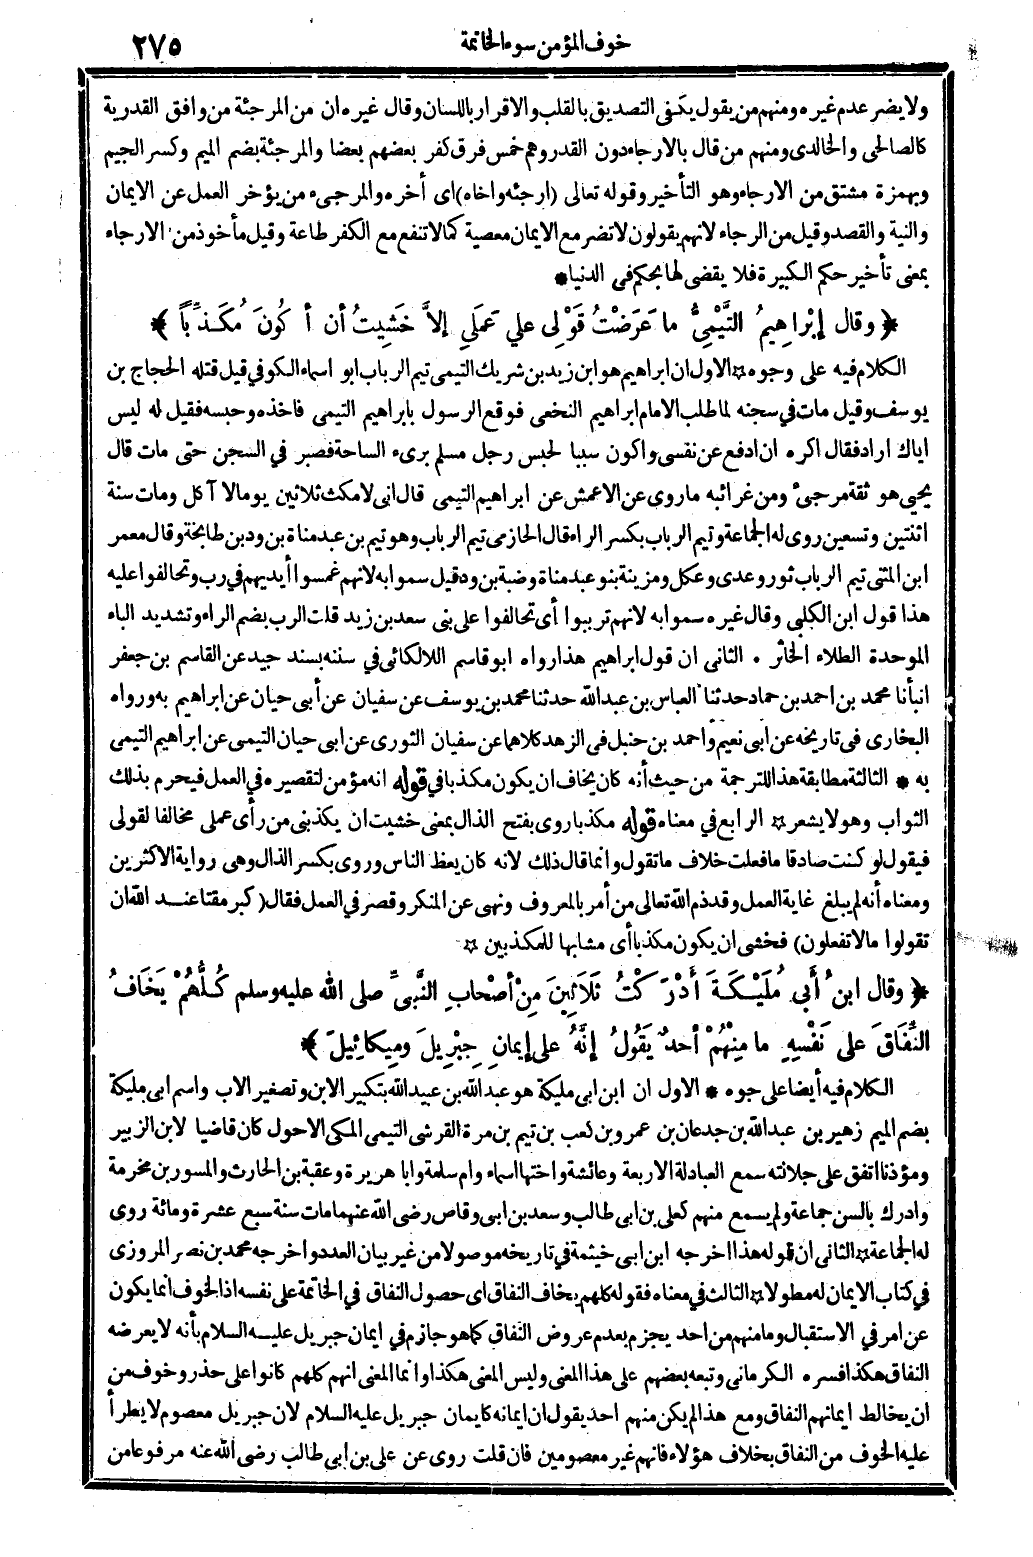 خوف المؤمن سوء الخاتمة
٢٧٥
ولا يضر عدم غيره ومنهم من يقول يكفى التصديق بالقلب والاقرار باللسان وقال غيره ان من المرجئة من وافق القدرية
كالصالحى والخالدى ومنهم من قال بالارجاء دون القدر وهم خمس فرق كفر بعضهم بعضا والمرجئة بضم الميم وكسر الجيم
وبهمزة مشتق من الارجاء وهو التأخير وقوله تعالى (ارجئه واخاه) اى أخره والمرجىء من يؤخر العمل عن الايمان
والنية والقصد وقيل من الرجاء لانهم يقولون لا تضر مع الايمان معصية كما لا تنفع مع الكفر طاعة وقيل مأخوذ من الارجاء
بمعنى تأخير حكم الكبيرة فلا يقضى لها بحكم في الدنيا *
﴿ وقال إبْراهِيمُ التَّيْمِيُّ ما عَرَضْتُ قَوْلِى علي عَمَلِي إلاَّ خَشِيتُ أن أكُونَ مُكَذِّباً ﴾
الكلام فيه على وجوه ☆ الاول ان ابراهيم هو ابن زيد بن شريك التيمى تيم الرباب ابو اسماء الكوفي قيل قتله الحجاج بن
يوسف وقيل مات في سجنه لما طلب الامام ابراهيم النخعى فوقع الرسول بابراهيم التيمى فاخذه وحبسه فقيل له ليس
اياك اراد فقال اكره ان ادفع عن نفسى واكون سببا لحبس رجل مسلم برىء الساحة فصبر في السجن حتى مات قال
يحيى هو ثقة مرجئ ومن غرائبه ما روى عن الاعمش عن ابراهيم التيمى قال انى لامكث ثلاثين يوما لا آكل ومات سنة
اثنتين وتسعين روى له الجماعة وتيم الرباب بكسر الراء قال الحازمى تيم الرباب وهو تيم بن عبد مناة بن ود بن طابخة وقال معمر
ابن المثنى تيم الرباب ثور وعدى وعكل ومزينة بنو عبد مناة وضبة بن ود قيل سموا به لانهم غمسوا أيديهم في رب وتحالفوا عليه
هذا قول ابن الكلبى وقال غيره سموا به لانهم ترببوا أى تحالفوا على بنى سعد بن زيد قلت الرب بضم الراء وتشديد الباء
الموحدة الطلاء الخاثر . الثانى ان قول ابراهيم هذا رواه ابو قاسم اللالكائى في سننه بسند جيد عن القاسم بن جعفر
انبأنا محمد بن احمد بن حماد حدثنا العباس بن عبد الله حدثنا محمد بن يوسف عن سفيان عن أبى حيان عن ابراهيم به ورواه
البخارى فى تاريخه عن ابى نعيم وأحمد بن حنبل فى الزهد كلاهما عن سفيان الثورى عن ابى حيان التيمى عن ابراهيم التيمى
به * الثالثة مطابقة هذا للترجمة من حيث أنه كان يخاف ان يكون مكذبا في قوله انه مؤمن لتقصيره فى العمل فيحرم بذلك
الثواب وهو لا يشعر ☆ الرابع في معناه قوله مكذبا روى بفتح الذال بمعنى خشيت ان يكذبنى من رأى عملى مخالفا لقولى
فيقول لو كنت صادقا ما فعلت خلاف ما تقول وانما قال ذلك لانه كان يعظ الناس وروى بكسر الذال وهى رواية الاكثرين
ومعناه أنه لم يبلغ غاية العمل وقد ذم الله تعالى من أمر بالمعروف ونهى عن المنكر وقصر في العمل فقال (كبر مقتا عند الله ان
تقولوا ما لا تفعلون) فخشى ان يكون مكذبا أى مشابها للمكذبين ☆
﴿ وقال ابنُ أبي مُلَيْكَةَ أدْرَكْتُ ثَلَاثِينَ مِنْ أصْحابِ النَّبيِّ صلى الله عليه وسلم كُلُّهُمْ يَخَافُ
النِّفَاقَ على نَفْسِهِ ما مِنْهُمْ أحدٌ يَقُولُ إنَّهُ على إيمانِ جِبْرِيلَ ومِيكائِيلَ ﴾
الكلام فيه أيضا على جوه * الاول ان ابن ابى مليكة هو عبد الله بن عبيد الله بتكبير الابن وتصغير الاب واسم ابى مليكة
بضم الميم زهير بن عبد الله بن جدعان بن عمرو بن كعب بن تيم بن مرة القرشى التيمى المكى الاحول كان قاضيا لابن الزبير
ومؤذنا اتفق على جلالته سمع العبادلة الاربعة وعائشة واختها اسماء وام سلمة وابا هريرة وعقبة بن الحارث والمسور بن مخرمة
وادرك بالسن جماعة ولم يسمع منهم كعلى بن ابى طالب وسعد بن ابى وقاص رضى الله عنهما مات سنة سبع عشرة ومائة روى
له الجماعة ☆ الثانى ان قوله هذا اخرجه ابن ابى خيثمة في تاريخه موصولا من غير بيان العدد واخرجه محمد بن نصر المروزى
في كتاب الايمان له مطولا ☆ الثالث في معناه فقوله كلهم يخاف النفاق اى حصول النفاق في الخاتمة على نفسه اذ الخوف انما يكون
عن امر في الاستقبال وما منهم من احد يجزم بعدم عروض النفاق كما هو جازم في ايمان جبريل عليه السلام بأنه لا يعرضه
النفاق هكذا فسره الكرمانى وتبعه بعضهم على هذا المعنى وليس المعنى هكذا وانما المعنى انهم كلهم كانوا على حذر وخوف من
ان يخالط ايمانهم النفاق ومع هذا لم يكن منهم احد يقول ان ايمانه كايمان جبريل عليه السلام لان جبريل معصوم لا يطرأ
عليه الخوف من النفاق بخلاف هؤلاء فانهم غير معصومين فان قلت روى عن على بن أبى طالب رضى الله عنه مرفوعا من